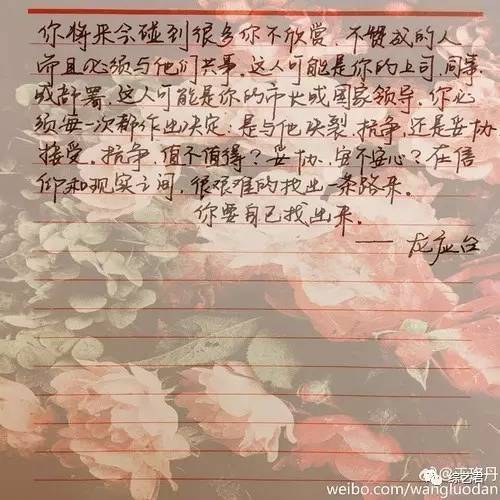 你将来会碰到很多你不欣赏、不赞成的人
而且必须与他们共事。这人可能是你的上司、同事、
或部署。这人可能是你的市长或国家领导。你必
须每一次都作出决定：是与他决裂、抗争，还是妥协
接受。抗争，值不值得？妥协，安不安心？在信
仰和现实之间，很艰难的找出一条路来。
你要自己找出来。
——龙应台
综艺语
weibo.com/wangluodan